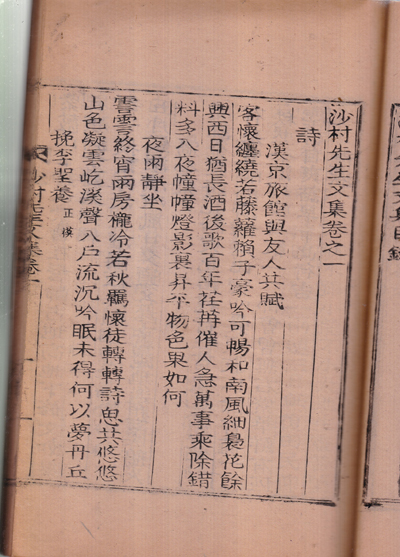 沙村先生文集卷之一
詩
漢京旅館與友人共賦
客懷纏繞若藤蘿賴子豪吟可暢和南風細裊花餘
興西日猶長酒後歌百年荏苒催人急萬事乘除錯
料多入夜幢幢燈影裏昇平物色果如何
夜雨靜坐
雲雲終宵雨房櫳冷若秋羈懷徒轉轉詩思共悠悠
山色凝雲屹溪聲入戶流沉吟眠未得何以夢丹丘
挽李聖養 正模
沙村先生文集卷一